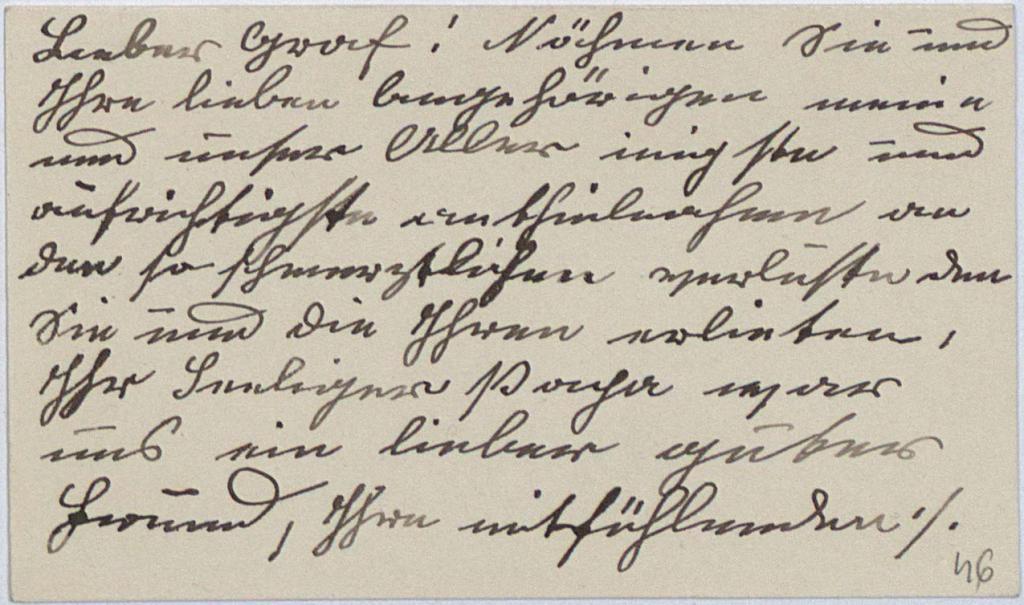 Lieber Graf! Nöhmen Sie und
Ihre lieben Angehörigen meine
und unser Aller innigste und
aufrichtigste antheilnahme an
den so schmerzlichen verluste den
Sie und die Ihren erlieten,
Ihr Seeliger Papa war
uns ein lieber guter
Freund, Ihre mitfühlenden ./.
46